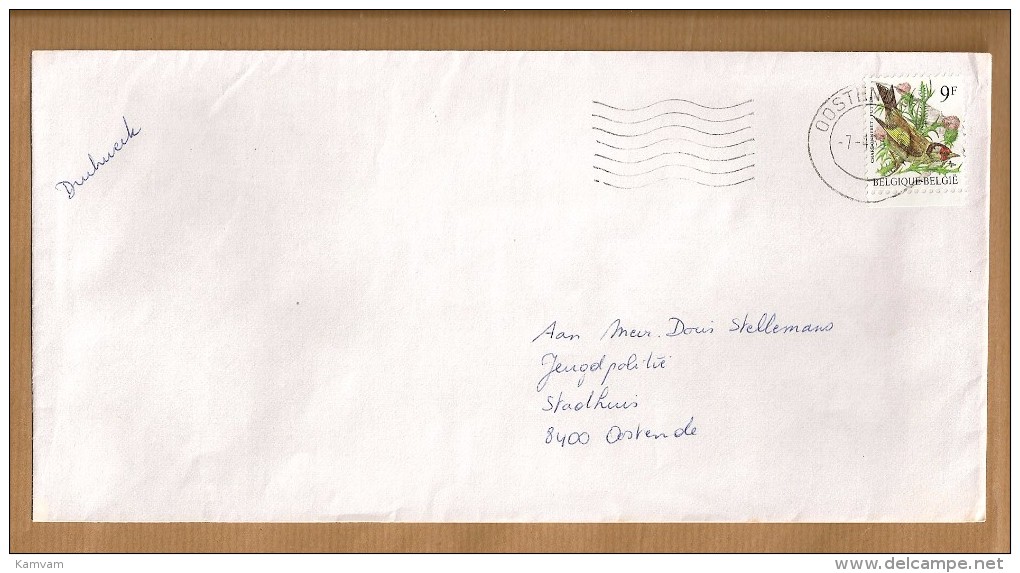 Drukwerk
OOSTEN
9F
-7-4
BELGIQUE-BELGIË
Aan Mevr. Doris Stellemans
Jeugdpolitie
Stadhuis
8400 Oostende
Kamvam
www.delcampe.net